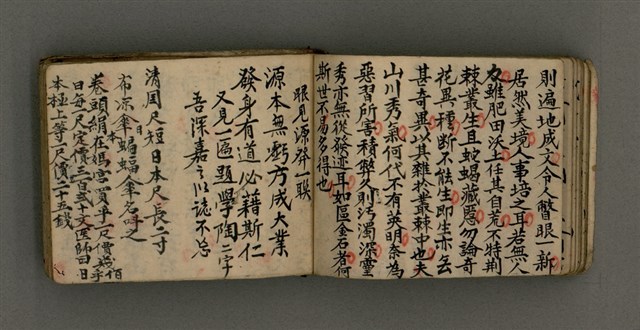 則遍地成文令人瞥眼一新
居然美境人事培之耳若無人
力雖肥田沃土任其自荒不特荆
棘叢生且蛇蝎藏慝勿論奇
花異種斷不能生即生亦無
甚奇異以其雜於叢棘中也夫
山川秀氣何代不有英明奈為
惡習所害積弊久則污濁深靈
秀亦無從發迹耳如區金石者何
斯世不易多得也
眼見源發一聯
源本無虧方成大業
發身有道必藉斯仁
又見一匾題學陶二字
吾深嘉之以誌不忘
清周尺短日本尺長二寸
布凉傘曰蝙蝠傘名呼之
卷頭絹在媽宮買半一尺價
日每尺定價三百弍十文
本極上等一尺價二十五錢